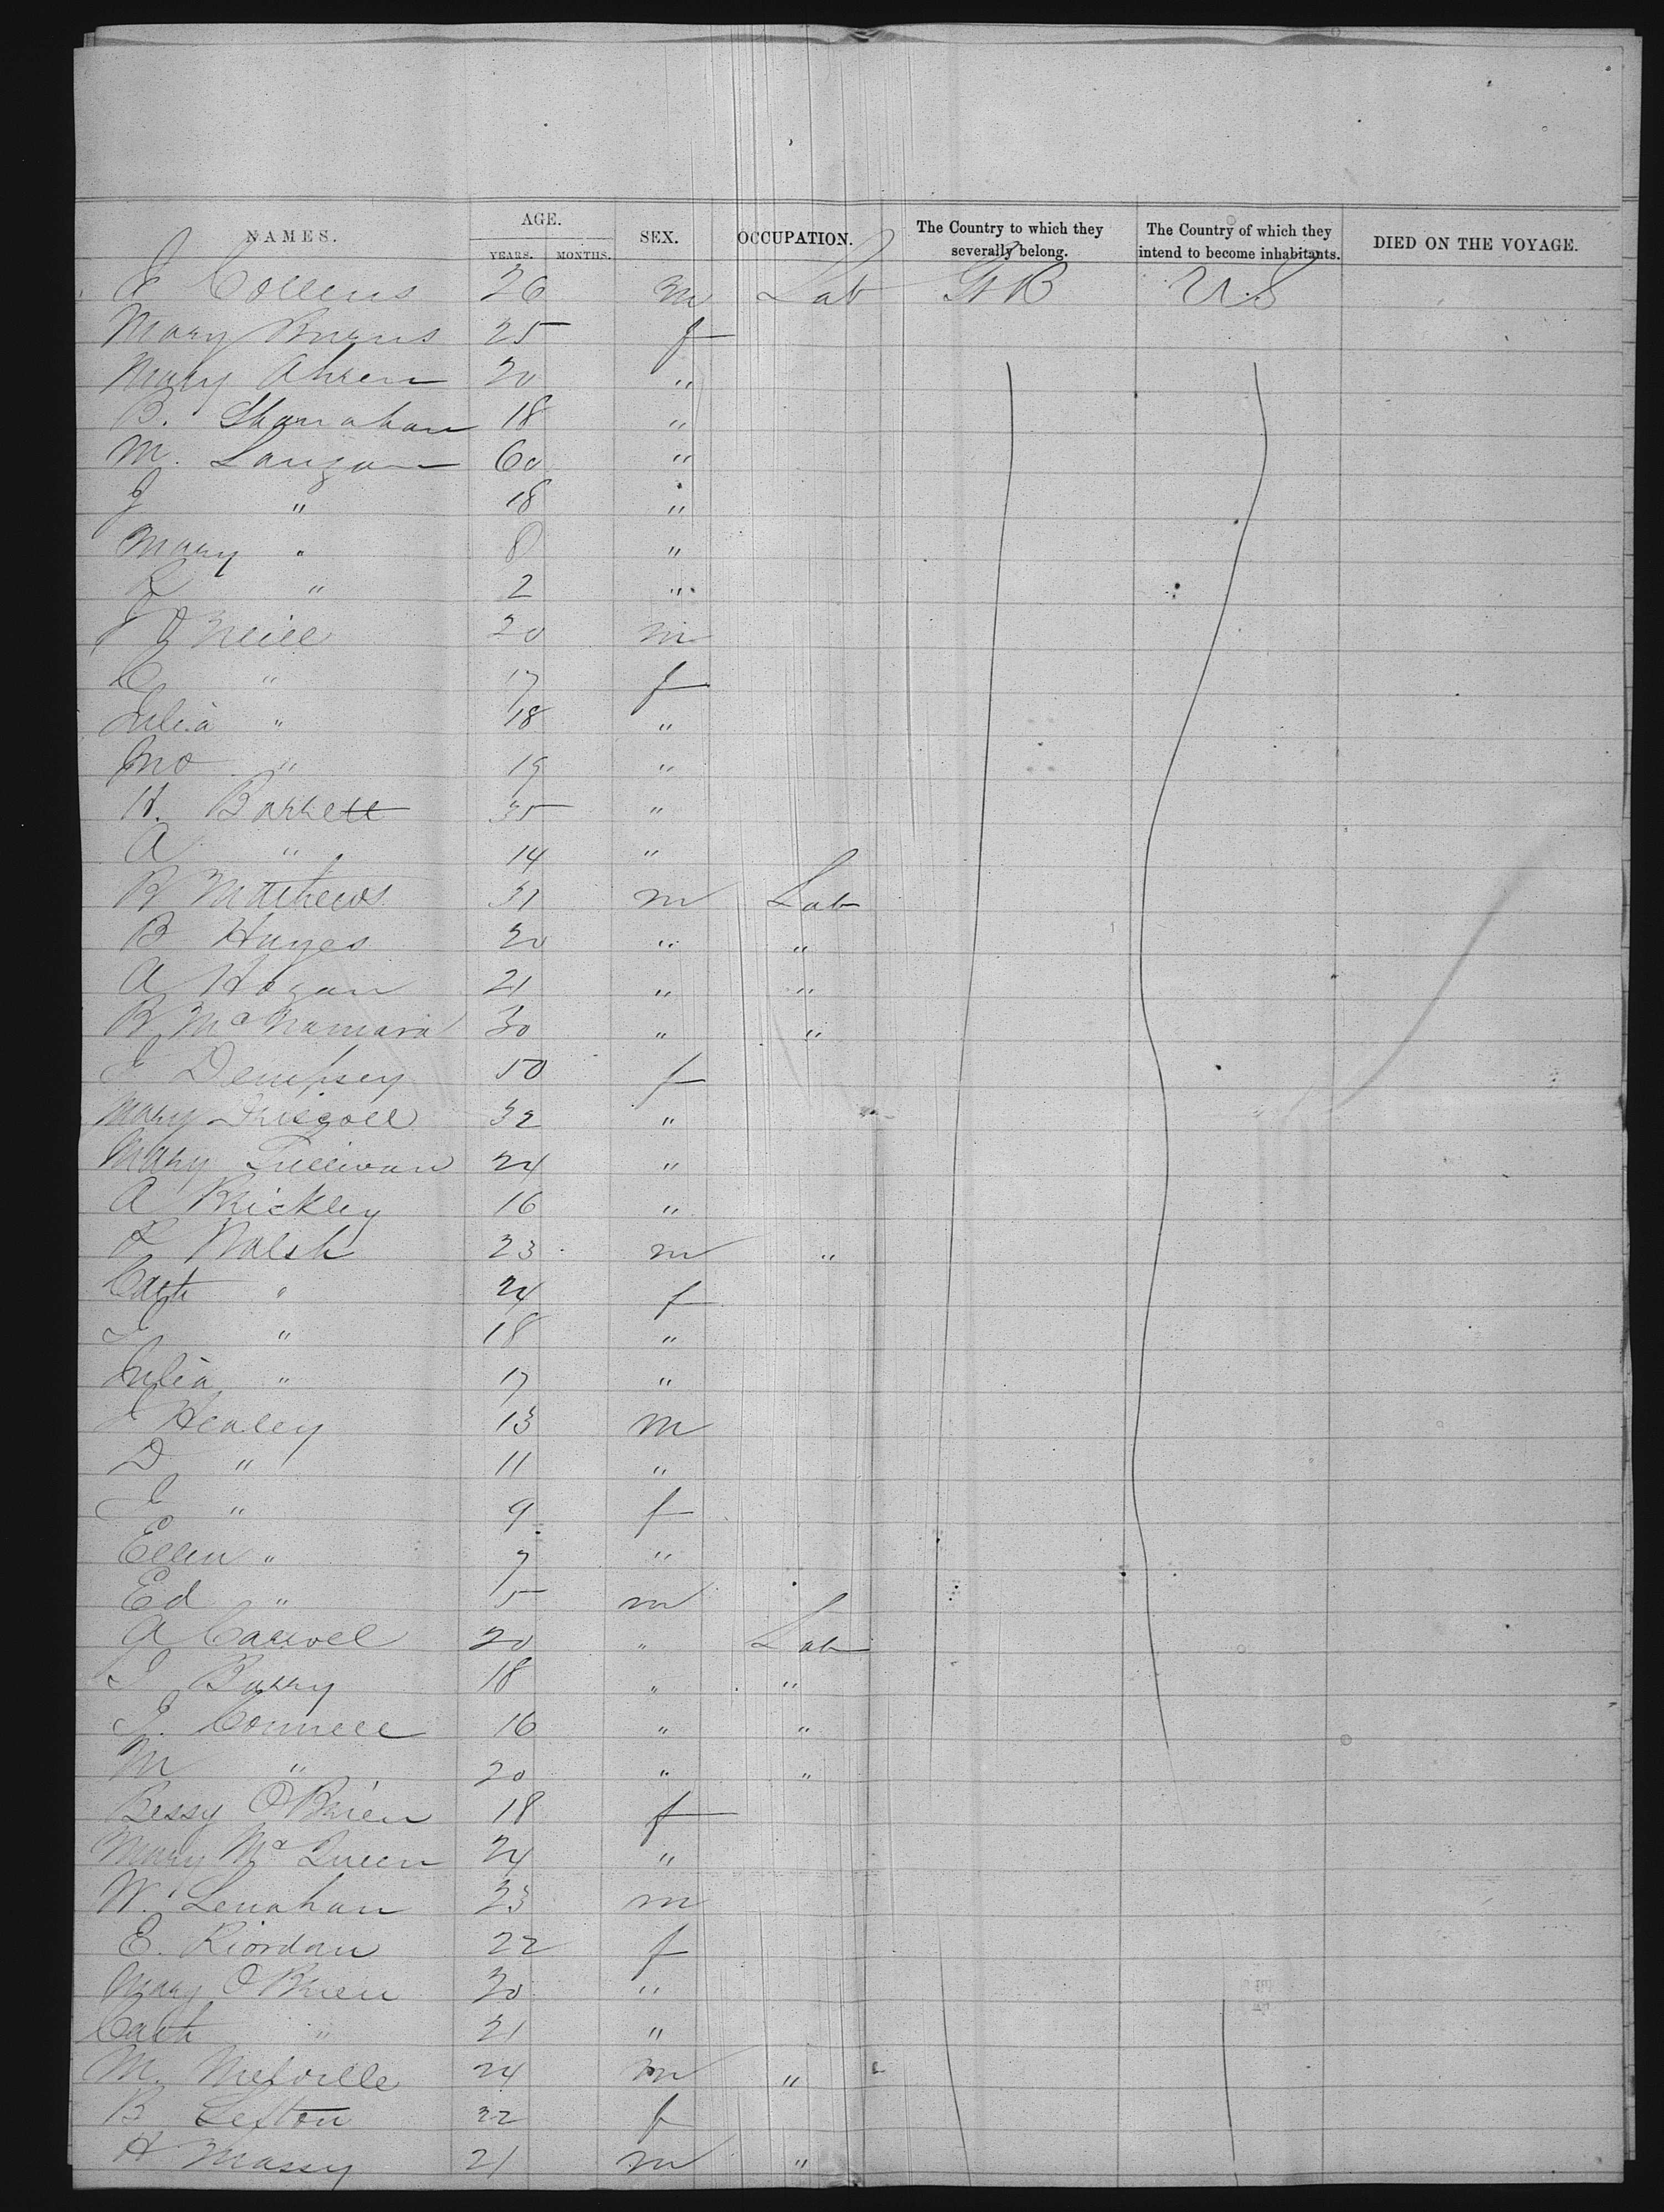 NAMES. AGE. SEX. OCCUPATION. The Country to which they severally belong. The Country of which they intend to become inhabitants. DIED ON THE VOYAGE.
YEARS. MONTHS.
J Collins 26 m Lab Gt B U.S
Mary Burns 25 f
Mary Ahren 20 "
B. Shanahan 18 "
M. Langan 60 "
J " 18 "
Mary " 8 "
" 2 "
J O'Neill 20 m
C " 17 f
Julia " 18 "
Jno " 19 "
H. Barrett 35 "
A " 14 "
R Matthews 31 m Lab
B Hayes 20 " "
A Hogan 21 " "
R McNamara 30 " "
J Dempsey 50 f
Mary Driscoll 32 "
Mary Sullivan 24 "
A Brickley 16 "
Walsh 23 m "
Cath " 24 f
J " 18 "
Julia " 17 "
J Healey 13 m
D " 11 "
J " 9 f
Ellen " 7 "
Ed " 5 m
A Carroll 20 " Lab
J Barry 18 " "
J. Connell 16 " "
M " 20 " "
Bessy O'Brien 18 f
Mary McQueen 24 "
W. Lenahan 23 m
E. Riordan 22 f
Mary O'Brien 30 "
Cath " 21 "
M. Melville 24 m "
B Lefton 22 f
H Massy 21 m "